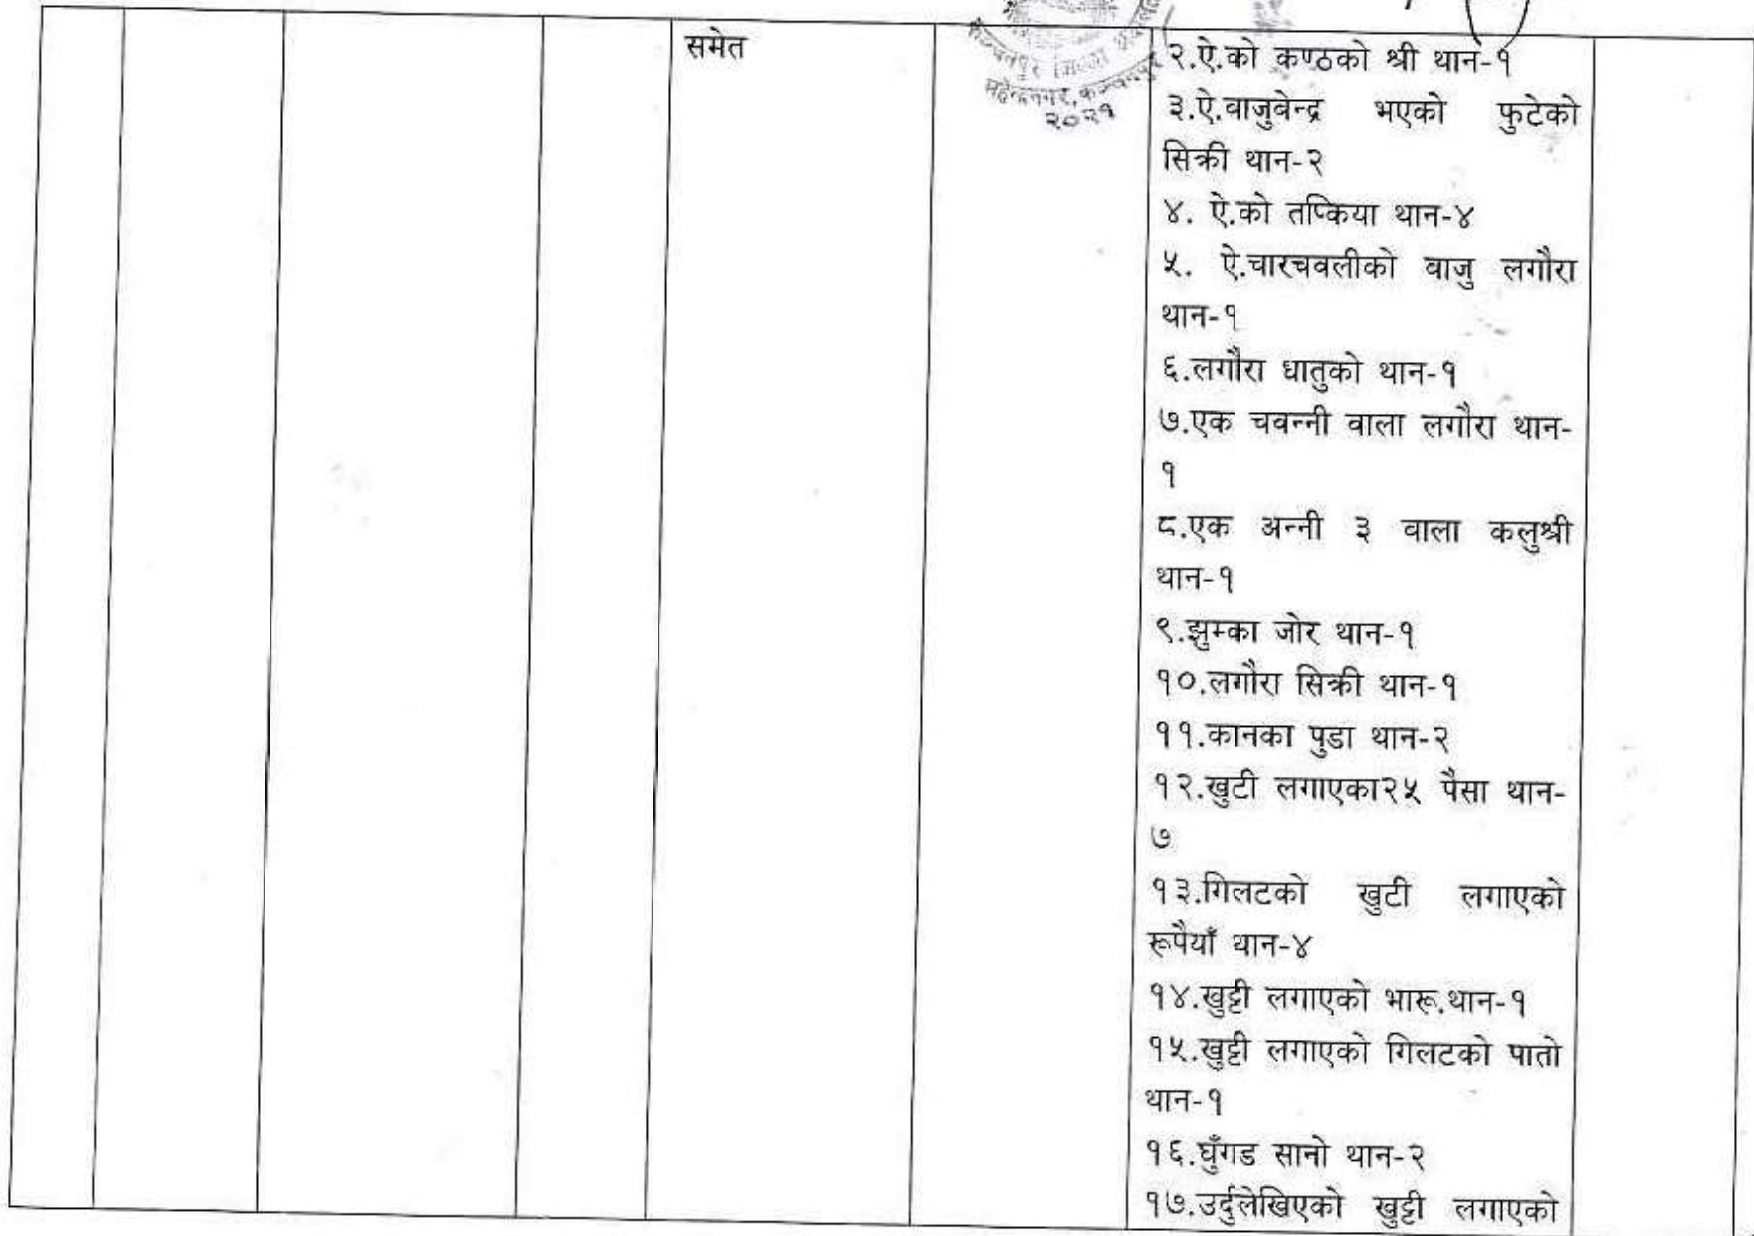 समेत
महेन्द्रनगर, कञ्चनपुर
२०२१
२.ऐ.को कण्ठको श्री थान-१
३.ऐ.वाजुवेन्द्र भएको फुटेको
सिक्री थान-२
४. ऐ.को तप्किया थान-४
५. ऐ.चारचवलीको वाजु लगौरा
थान-१
६.लगौरा धातुको थान-१
७.एक चवन्नी वाला लगौरा थान-
१
८.एक अन्नी ३ वाला कलुश्री
थान-१
९.झुम्का जोर थान-१
१०.लगौरा सिक्री थान-१
११.कानका पुडा थान-२
१२.खुटी लगाएका२५ पैसा थान-
७
१३.गिलटको खुटी लगाएको
रूपैयाँ थान-४
१४.खुट्टी लगाएको भारू.थान-१
१५.खुट्टी लगाएको गिलटको पातो
थान-१
१६.घुँगड सानो थान-२
१७.उर्दुलेखिएको खुट्टी लगाएको